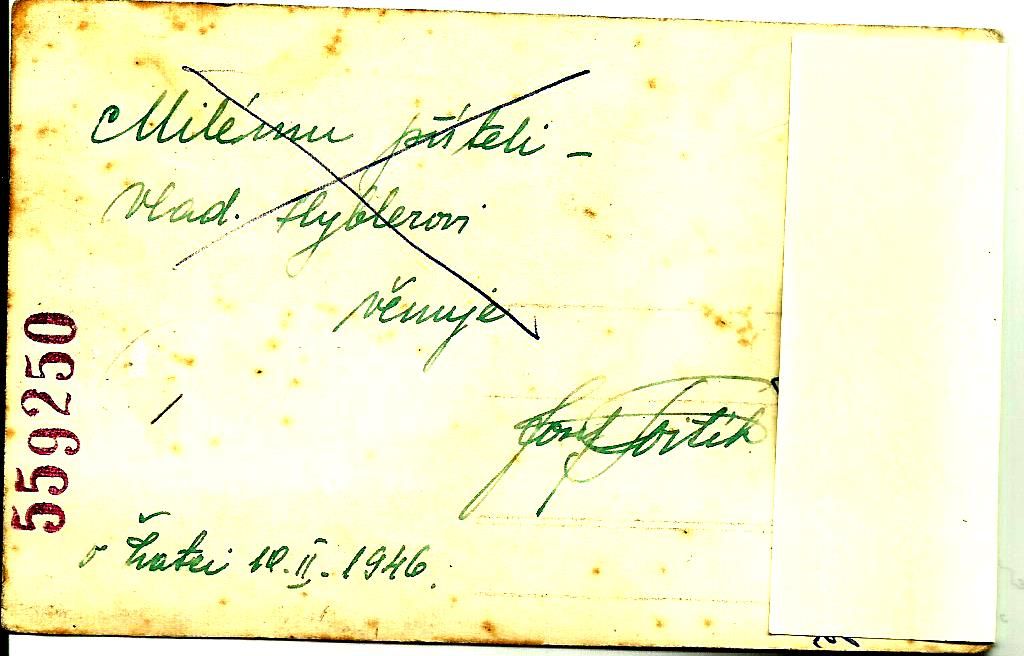 Milému příteli –
Vlad. Hyblerovi
věnuje
Josef
v Žatci 10.II.1946.
559250